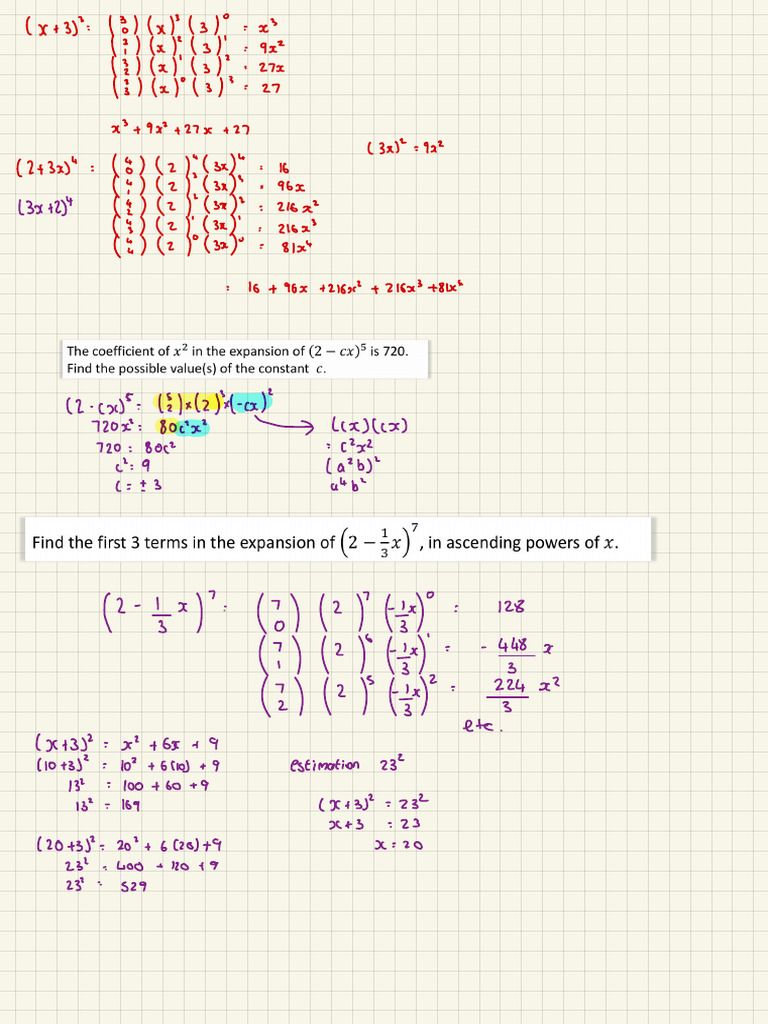 (x+3)³ = (3 0) (x)³ (3)⁰ = x³
(3 1) (x)² (3)¹ = 9x²
(3 2) (x)¹ (3)² = 27x
(3 3) (x)⁰ (3)³ = 27
x³ + 9x² + 27x + 27
(3x)² = 9x²
(2+3x)⁴ = (4 0) (2)⁴ (3x)⁴ = 16
(3x+2)⁴
(4 1) (2)³ (3x)³ = 96x
(4 2) (2)² (3x)² = 216x²
(4 3) (2)¹ (3x)¹ = 216x³
(4 4) (2)⁰ (3x)⁰ = 81x⁴
= 16 + 96x + 216x² + 216x³ + 81x⁴
The coefficient of x² in the expansion of (2 − cx)⁵ is 720.
Find the possible value(s) of the constant c.
(2-cx)⁵ = (5 2) × (2)³ × (-cx)²
720x² = 80c²x²
720 = 80c²
c² = 9
c = ± 3
(cx)(cx)
= c²x²
(a²b)²
a⁴b²
Find the first 3 terms in the expansion of (2 − 1/3 x)⁷, in ascending powers of x.
(2 - 1/3 x)⁷ = (7 0) (2)⁷ (-1/3 x)⁰ = 128
(7 1) (2)⁶ (-1/3 x)¹ = - 448/3 x
(7 2) (2)⁵ (-1/3 x)² = 224/3 x²
etc.
(x+3)² = x² + 6x + 9
(10+3)² = 10² + 6(10) + 9
13² = 100 + 60 + 9
13² = 169
estimation 23²
(x+3)² = 23²
x+3 = 23
x = 20
(20+3)² = 20² + 6(20) + 9
23² = 400 + 120 + 9
23² = 529